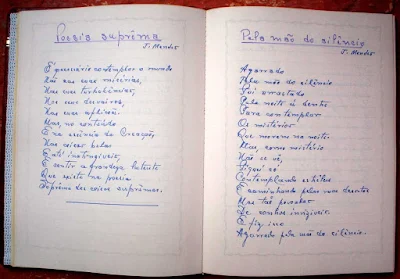 Poesia suprêma
J. Mendes
É necessário contemplar o mundo
Não nas suas misérias,
Nas suas turbulências,
Nos seus devaires,
Nas suas aflições.
Mas, no conteúdo
E na essência da Creacção,
Nas coisas belas
E até inatingíveis,
E sentir a grandeza latente
Que existe na poesia
Suprêma das coisas suprêmas.
Pela mão do silêncio
J. Mendes
Agarrado
Pela mão do silêncio
Fui arrastado
Pela noite a dentro
Para contemplar
Os mistérios
Que moram na noite.
Mas, como mistério
Não se vê,
Fiquei só
Contemplando
E caminhando pelas ruas desertas
Mas tão povoadas
De sombras invizíveis.
E fiquei
Agarrado pela mão do silêncio.